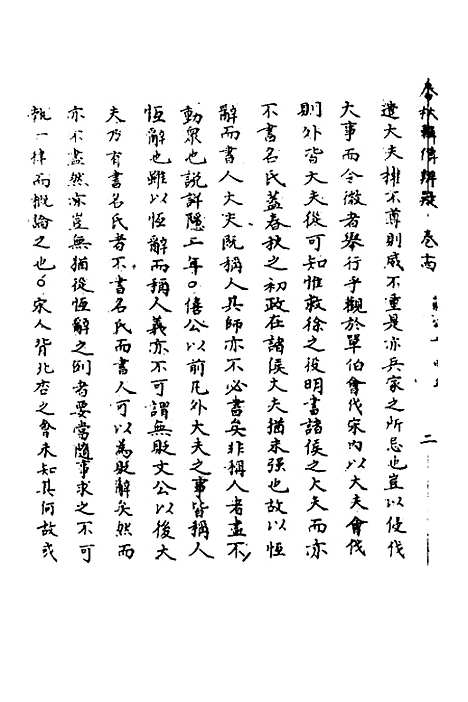 春秋輯傳辨疑 卷十四
二
遣大夫權不尊則威不重是亦兵家之所忌也豈以侵伐
大事而令微者舉行乎觀於單伯會伐宋內以大夫會伐
則外皆大夫從可知惟救徐之役明書諸侯之大夫而亦
不書名氏蓋春秋之初政在諸侯大夫猶未强也故以恆
辭而書人大夫既稱人其師亦不必書矣非稱人者盡不
動衆也説詳隱二年○僖公以前凡外大夫之事皆稱人
恆辭也雖以恆辭而稱人義亦不可謂無貶文公以後大
夫乃有書名氏者不書名氏而書人可以為貶辭矣然而
亦不盡然亦豈無猶從恆辭之例者要當隨事求之不可
執一律而概論之也○宋人背北杏之會未知其何故或